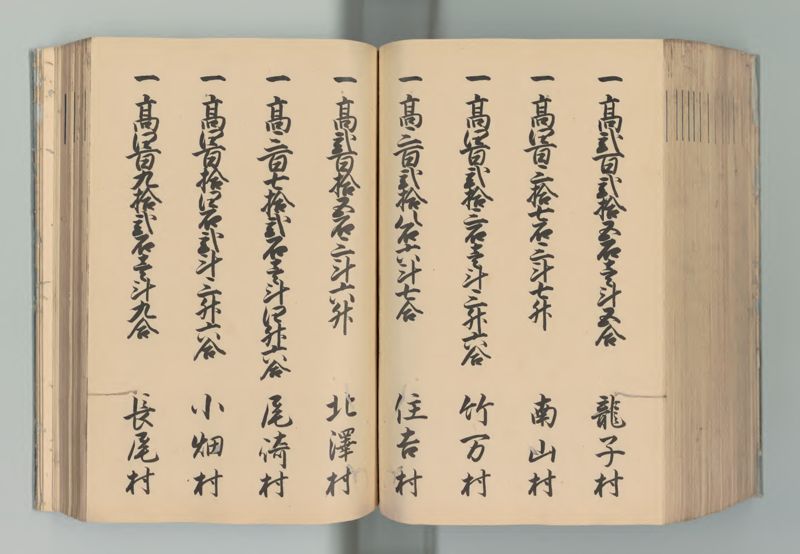 一 高弐百弐拾五石壱斗五合 龍子村
一 高四百三拾七石三斗七升 南山村
一 高四百弐拾三石壱斗三升六合 竹万村
一 高三百弐拾八石六斗七合 住吉村
一 高弐百拾五石三斗六升 北澤村
一 高三百七拾弐石壱斗四升六合 尾崎村
一 高四百拾四石弐斗三升六合 小畑村
一 高四百九拾弐石壱斗九合 長尾村